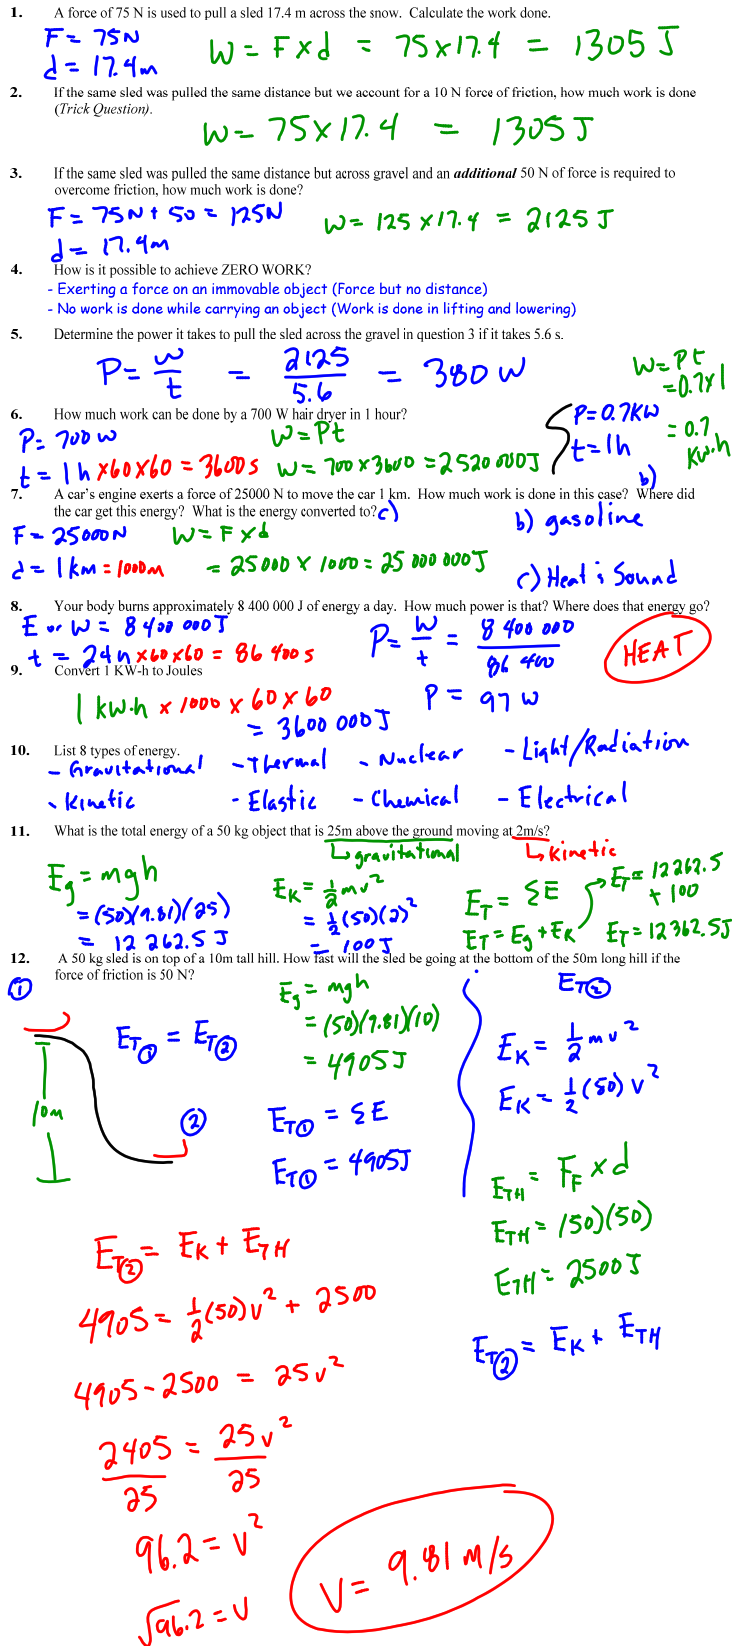 1. A force of 75 N is used to pull a sled 17.4 m across the snow. Calculate the work done.
F = 75N
d = 17.4m
W = F x d = 75 x 17.4 = 1305 J
2. If the same sled was pulled the same distance but we account for a 10 N force of friction, how much work is done
(Trick Question).
W = 75 x 17.4 = 1305 J
3. If the same sled was pulled the same distance but across gravel and an additional 50 N of force is required to
overcome friction, how much work is done?
F = 75N + 50 = 125N
d = 17.4m
W = 125 x 17.4 = 2125 J
4. How is it possible to achieve ZERO WORK?
- Exerting a force on an immovable object (Force but no distance)
- No work is done while carrying an object (Work is done in lifting and lowering)
5. Determine the power it takes to pull the sled across the gravel in question 3 if it takes 5.6 s.
P = W/t = 2125/5.6 = 380 W
6. How much work can be done by a 700 W hair dryer in 1 hour?
P = 700 W
t = 1 h x 60 x 60 = 3600 s
W = Pt
W = 700 x 3600 = 2520 000J
P = 0.7 KW
t = 1h
W = Pt
= 0.7 x 1
= 0.7 KW·h
7. A car's engine exerts a force of 25000 N to move the car 1 km. How much work is done in this case? b) Where did
the car get this energy? What is the energy converted to? c)
F = 25000 N
d = 1 km = 1000m
W = F x d
= 25000 x 1000 = 25 000 000J
b) gasoline
c) Heat & Sound
8. Your body burns approximately 8 400 000 J of energy a day. How much power is that? Where does that energy go?
E or W = 8 400 000J
t = 24h x 60 x 60 = 86 400 s
P = W/t = 8 400 000/86 400
P = 97 W
HEAT
9. Convert 1 KW-h to Joules
1 kW·h x 1000 x 60 x 60
= 3600 000J
10. List 8 types of energy.
- Gravitational - Thermal - Nuclear - Light/Radiation
- Kinetic - Elastic - Chemical - Electrical
11. What is the total energy of a 50 kg object that is 25m above the ground moving at 2m/s?
↳ gravitational
↳ kinetic
Eg = mgh
= (50)(9.81)(25)
= 12 262.5 J
EK = ½mv²
= ½(50)(2)²
= 100J
ET = ΣE
ET = Eg + EK
ET = 12262.5
+ 100
ET = 12362.5J
12. A 50 kg sled is on top of a 10m tall hill. How fast will the sled be going at the bottom of the 50m long hill if the
force of friction is 50 N?
①
10m
②
ET① = ET②
Eg = mgh
= (50)(9.81)(10)
= 4905J
ET① = ΣE
ET① = 4905J
ET②
EK = ½mv²
EK = ½(50)v²
ETH = FF x d
ETH = (50)(50)
ETH = 2500J
ET② = EK + ETH
ET② = EK + ETH
4905 = ½(50)v² + 2500
4905 - 2500 = 25v²
2405/25 = 25v²/25
96.2 = v²
√96.2 = v
v = 9.81 m/s